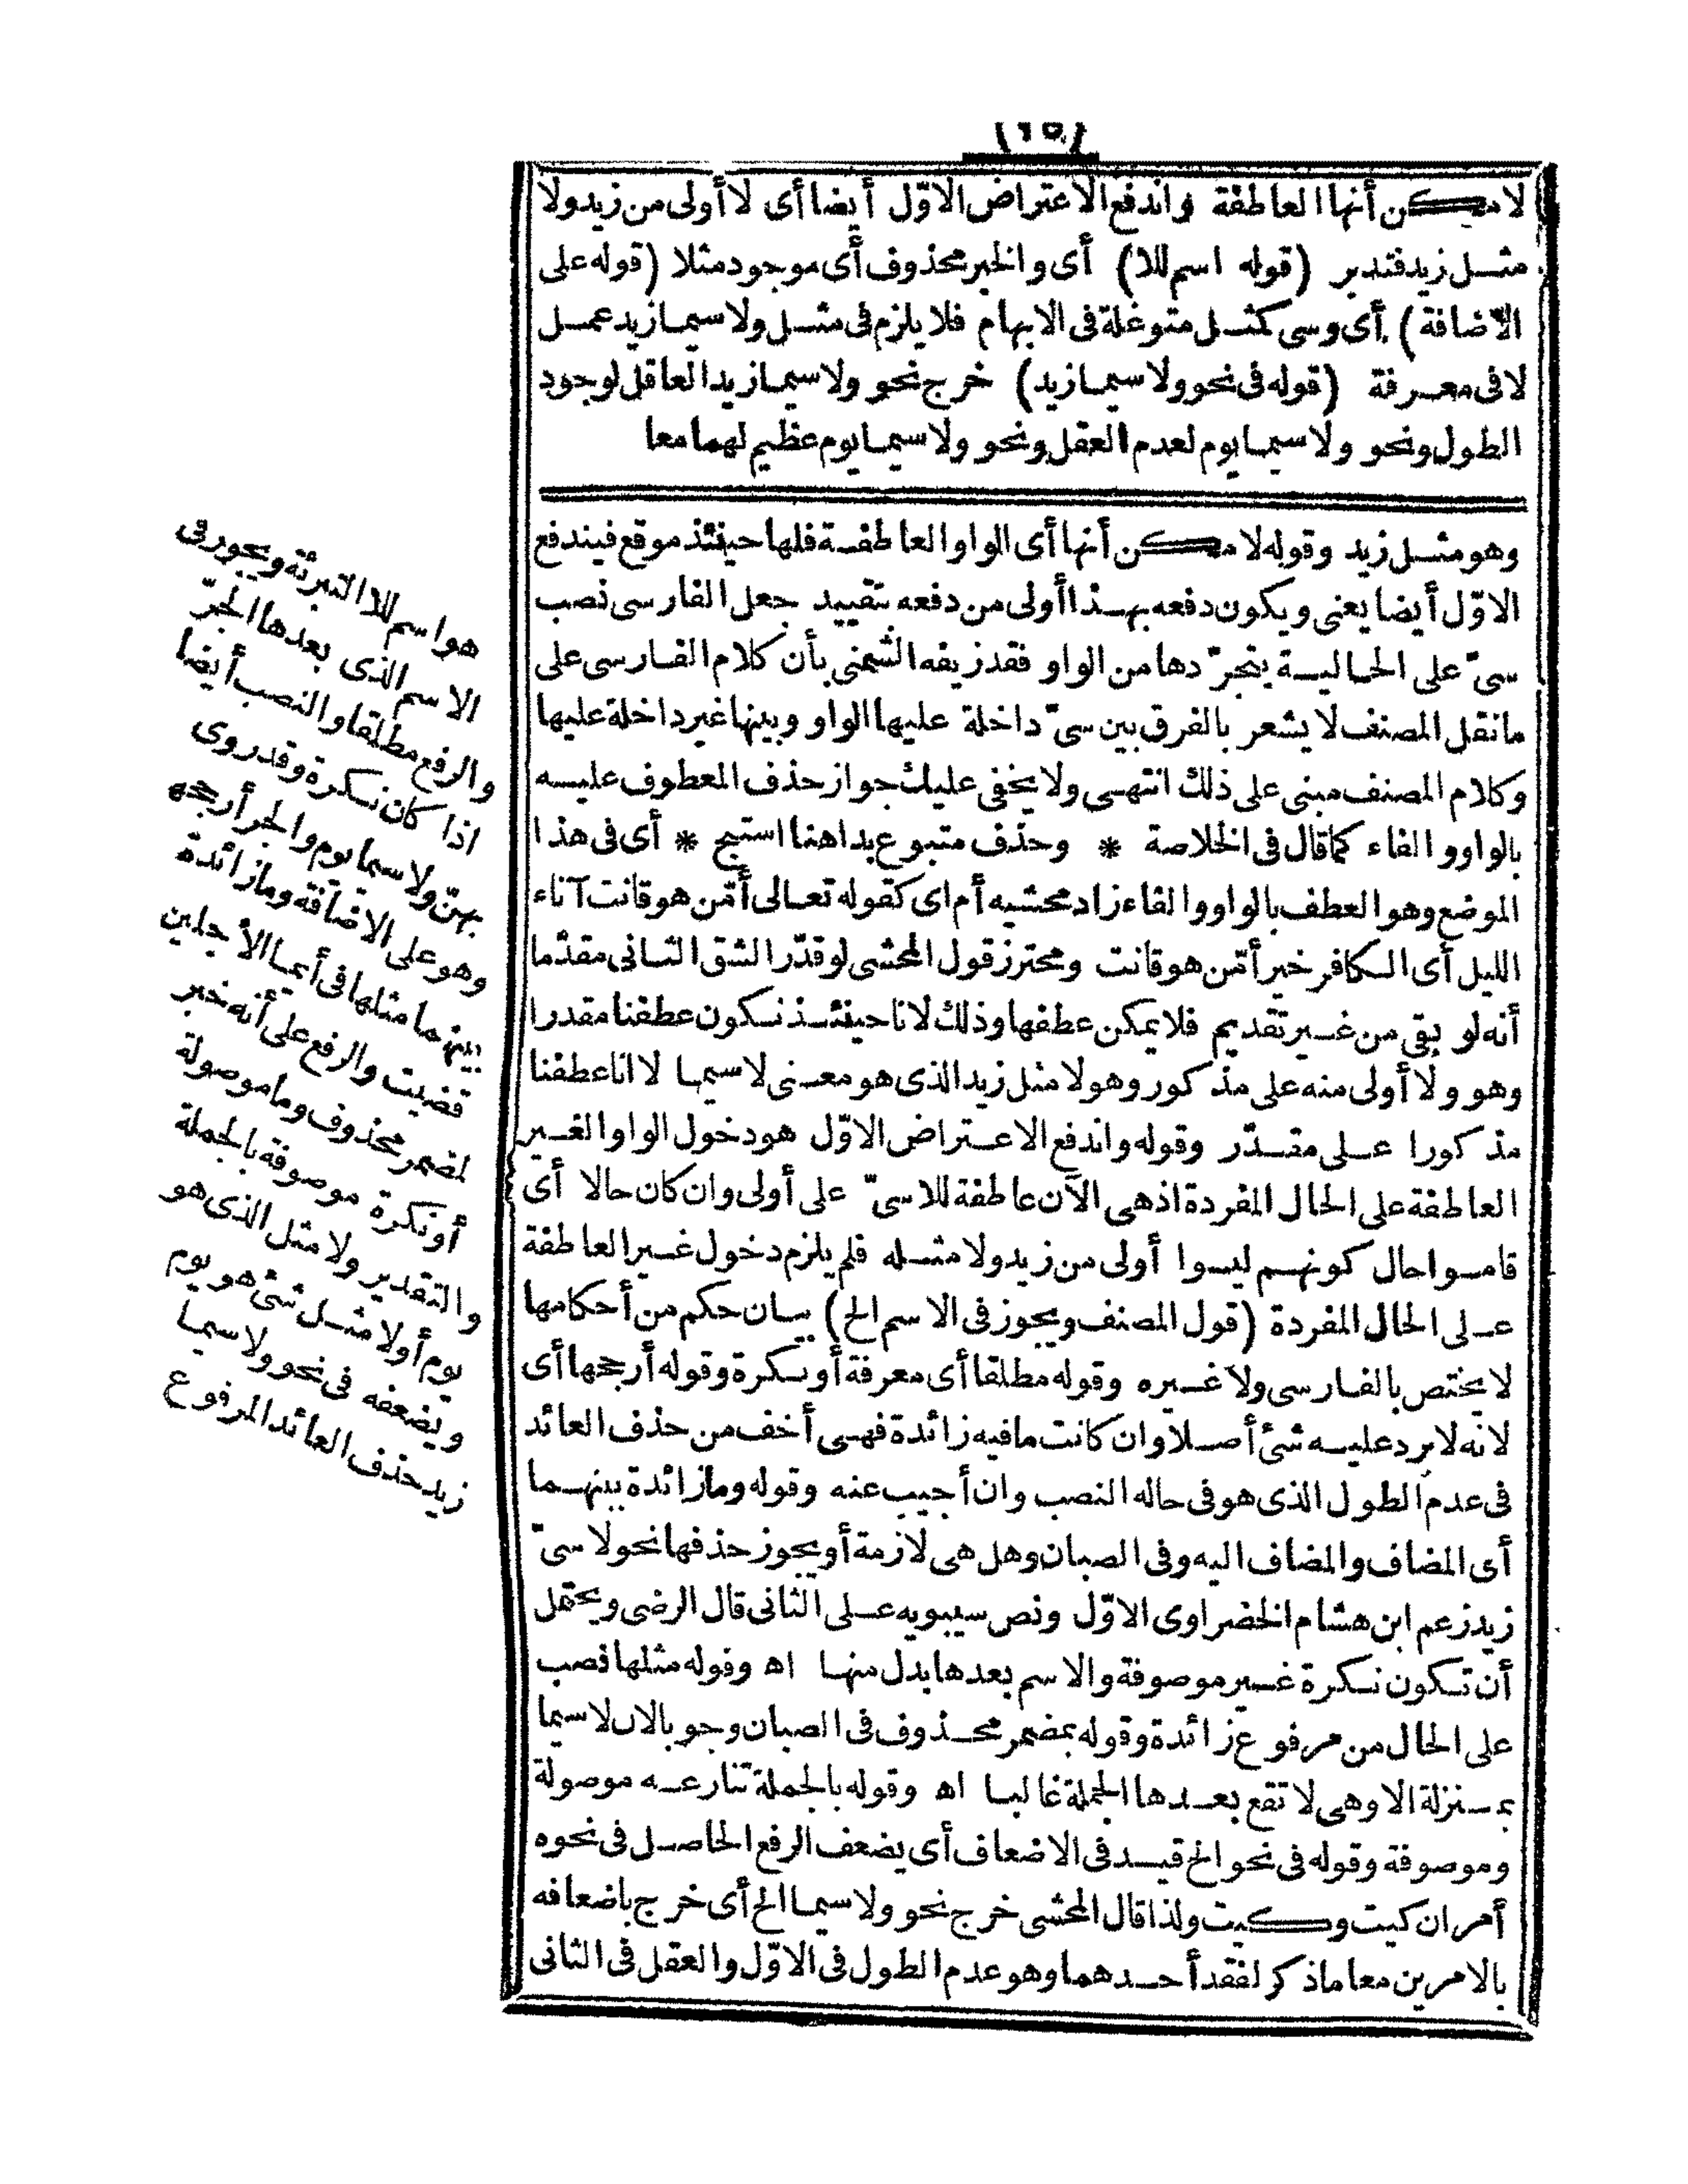 (١٥)
لامكن أنها العاطفة واندفع الاعتراض الاوّل أيضا أى لا أولى من زيد ولا
مثل زيد فتدبر (قوله اسم للا) أى والخبر محذوف أى موجود مثلا (قوله على
الاضافة) أى وسى كمثل متوغلة فى الابهام فلا يلزم فى مثل ولا سيما زيد عمل
لا فى معرفة (قوله فى نحو ولا سيما زيد) خرج نحو ولا سيما زيد العاقل لوجود
الطول ونحو ولا سيما يوم لعدم العقل ونحو ولا سيما يوم عظيم لهما معا
وهو مثل زيد وقوله لامكن أنها أى الواو العاطفة فلها حينئذ موقع فيندفع
الاوّل أيضا يعنى ويكون دفعه بهذا أولى من دفعه بتقييد جعل الفارسى نصب
سىّ على الحالية بتجرّدها من الواو فقد زيفه الشمنى بأن كلام الفارسى على
ما نقل المصنف لا يشعر بالفرق بين سىّ داخلة عليها الواو وبينها غير داخلة عليها
وكلام المصنف مبنى على ذلك انتهى ولا يخفى عليك جواز حذف المعطوف عليه
بالواو والفاء كما قال فى الخلاصة * وحذف متبوع بدا هنا استبح * أى فى هذا
الموضع وهو العطف بالواو والفاء زاد محشيه أم اى كقوله تعالى أمّن هو قانت آناء
الليل أى الكافر خير أمّن هو قانت ومحترز قول المحشى لو قدّر الشق الثانى مقدّما
أنه لو بقى من غير تقديم فلا يمكن عطفها وذلك لانا حينئذ نكون عطفنا مقدرا
وهو ولا أولى منه على مذكور وهو لا مثل زيد الذى هو معنى لا سيما لا انا عطفنا
مذكورا على مقدّر وقوله واندفع الاعتراض الاوّل هو دخول الواو الغير
العاطفة على الحال المفردة اذ هى الآن عاطفة للاسىّ على أولى وان كان حالا أى
قاموا حال كونهم ليسوا أولى من زيد ولا مثله فلم يلزم دخول غير العاطفة
على الحال المفردة (قول المصنف ويجوز فى الاسم الخ) بيان حكم من أحكامها
لا يختص بالفارسى ولا غيره وقوله مطلقا أى معرفة أو نكرة وقوله أرجحها أى
لانه لا يرد عليه شئ أصلا وان كانت ما فيه زائدة فهى أخف من حذف العائد
فى عدم الطول الذى هو فى حاله النصب وان أجيب عنه وقوله وما زائدة بينهما
أى المضاف والمضاف اليه وفى الصبان وهل هى لازمة أو يجوز حذفها نحو لا سىّ
زيد زعم ابن هشام الخضراوى الاوّل ونص سيبويه على الثانى قال الرضى ويحتمل
أن تكون نكرة غير موصوفة والاسم بعدها بدل منها اه وقوله مثلها نصب
على الحال من مرفوع زائدة وقوله بمضمر محذوف فى الصبان وجوبا لان لا سيما
بمنزلة الا وهى لا تقع بعدها الجملة غالبا اه وقوله بالجملة تنازعه موصولة
وموصوفة وقوله فى نحو الخ قيد فى الاضعاف أى يضعف الرفع الحاصل فى نحوه
أمران كيت وكيت ولذا قال المحشى خرج نحو ولا سيما الخ أى خرج باضعافه
بالامرين معا ما ذكر لفقد أحدهما وهو عدم الطول فى الاوّل والعقل فى الثانى
هو اسم للا التبرئة ويجوز فى
الاسم الذى بعدها الجرّ
والرفع مطلقا والنصب أيضا
اذا كان نكرة وقد روى
بهنّ ولا سيما يوم والجر أرجحها
وهو على الاضافة وما زائدة
بينهما مثلها فى أيما الأجلين
قضيت والرفع على أنه خبر
لمضمر محذوف وما موصولة
أو نكرة موصوفة بالجملة
والتقدير ولا مثل الذى هو
يوم أو لا مثل شئ هو يوم
ويضعفه فى نحو ولا سيما
زيد حذف العائد المرفوع